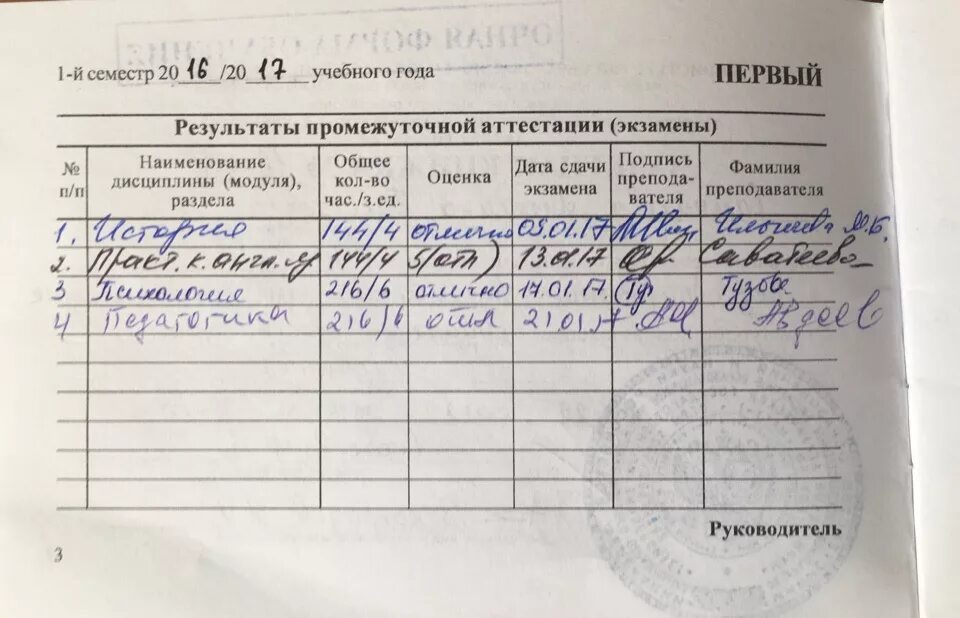 1-й семестр 2016/2017 учебного года
ПЕРВЫЙ
Результаты промежуточной аттестации (экзамены)
№ п/п Наименование дисциплины (модуля), раздела Общее кол-во час./з.ед. Оценка Дата сдачи экзамена Подпись препода-вателя Фамилия преподавателя
1. История 144/4 отлично 05.01.17
2. Практ. к. англ. яз 144/4 5(отл) 13.01.17
3 Психология 216/6 отлично 17.01.17.
4 Педагогика 216/6 отл 21.01.17 Авдеев
Руководитель
3